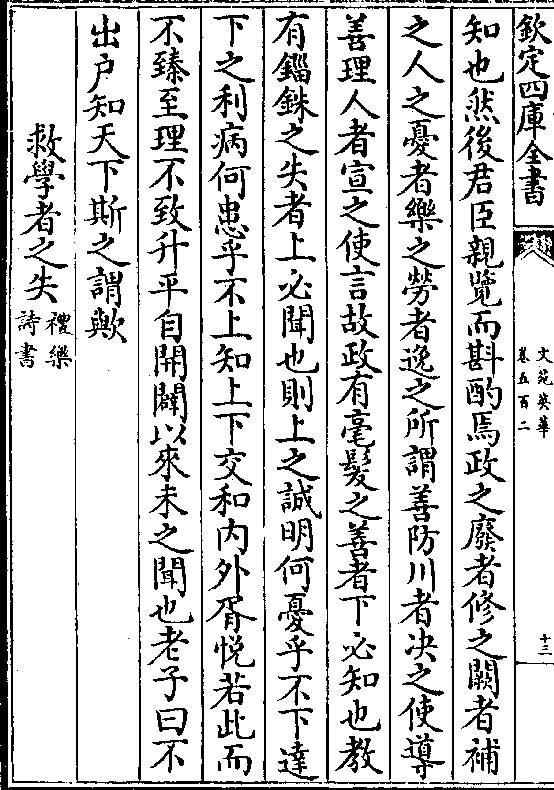 欽定四庫全書
文苑英華
卷五百二
十三
知也然後君臣親覽而斟酌焉政之廢者修之闕者補
之人之憂者樂之勞者逸之所謂善防川者决之使導
善理人者宣之使言故政有毫髮之善者下必知也教
有錙銖之失者上必聞也則上之誠明何憂乎不下達
下之利病何患乎不上知上下交和内外胥悦若此而
不臻至理不致升平自開闢以來未之聞也老子曰不
出户知天下斯之謂歟
救學者之失禮樂
詩書